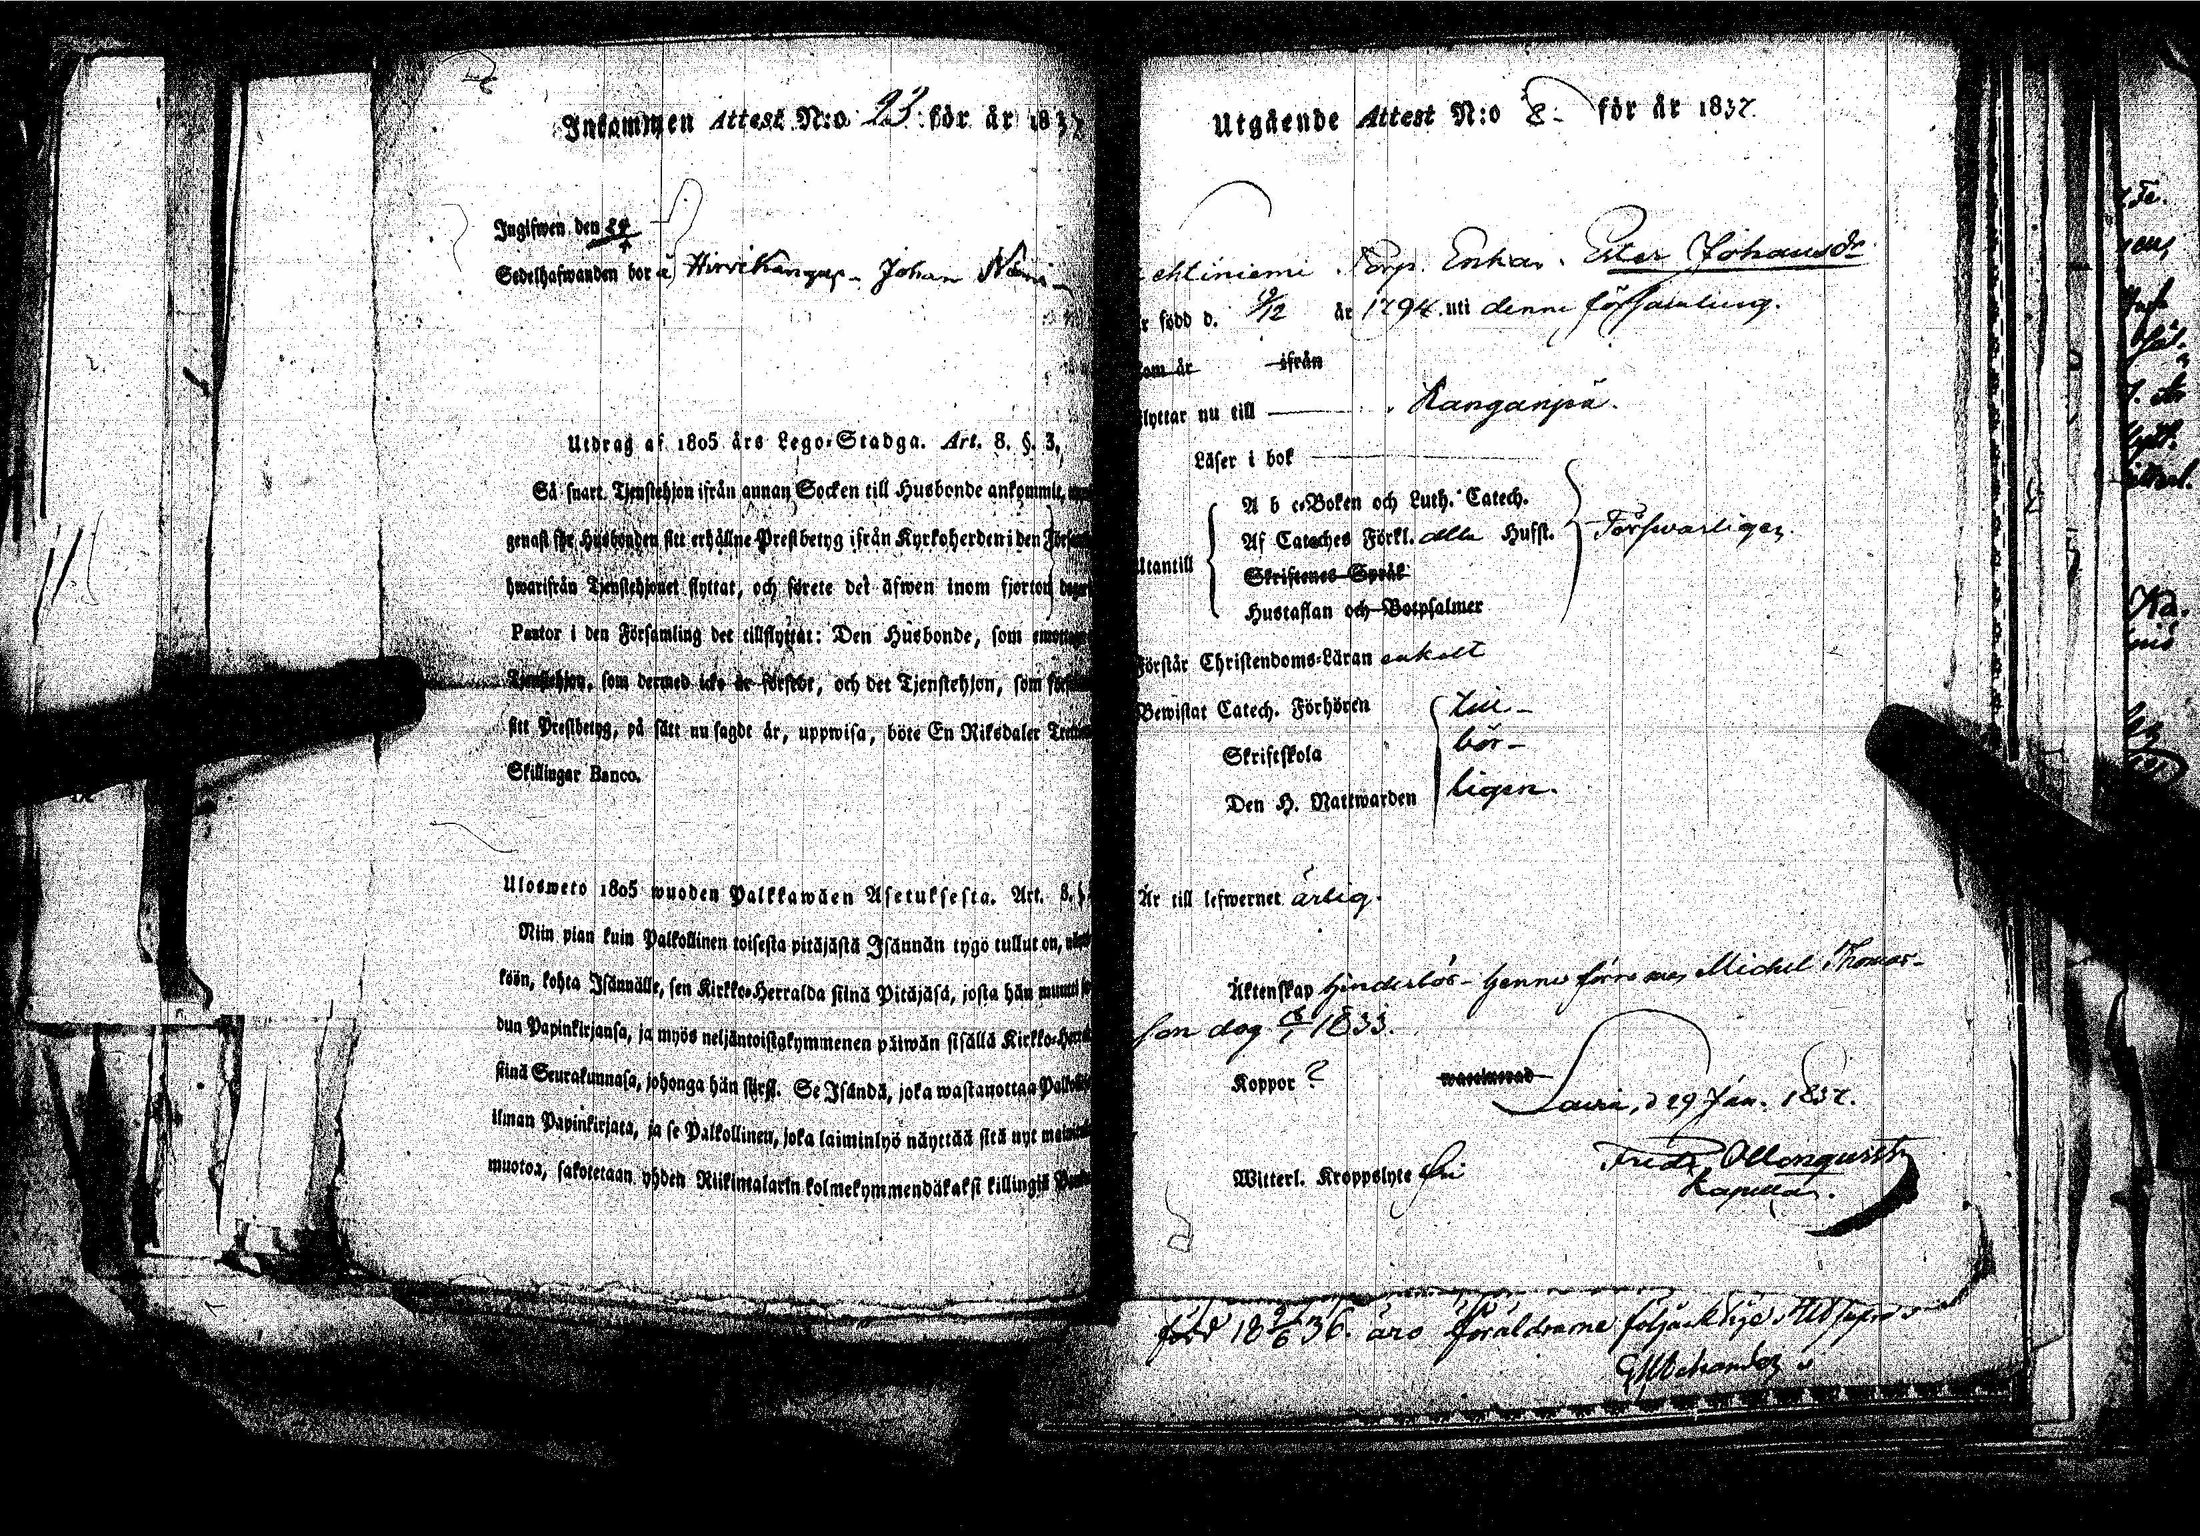 Inkommen Attest N:o 23 för år 183
Ingifwen den 24
Sedelhafwanden bor å Hirvikangas Johan
Utdrag af 1805 års Lego-Stadga. Art. 8. §. 3,
Så snart Tjenstehjon ifrån annan Socken till Husbonde ankommit,
genast för Husbonden sitt erhållne Prestbetyg ifrån Kyrkoherden i den
hwarifrån Tjenstehjonet flyttat, och förete det äfwen inom fjorton
Pastor i den Församling det tillflyttat: Den Husbonde, som
Tjenstehjon, som dermed icke är försedt, och det Tjenstehjon, som
sitt Prestbetyg, på sätt nu sagdt är, uppwisa, böte En Riksdaler
Skillingar Banco.
Ulosweto 1805 wuoden Palkkawäen Asetuksesta. Art. 8.
Niin pian kuin Palkollinen toisesta pitäjästä Isännän tygö tullut on,
köön, kohta Isännälle, sen Kirkko-Herralda siinä Pitäjäsä, josta hän
dun Papinkirjansa, ja myös neljäntoistakymmenen päiwän sisällä
siinä Seurakunnasa, johonga hän siirsi. Se Isändä, joka wastanottaa
ilman Papinkirjata, ja se Palkollinen, joka laiminlyö näyttää sitä nyt
muotoa, sakotetaan yhden Riikintalarin kolmekymmendäkaksi killingiä
Utgående Attest N:o 8 för år 1837.
Torp. Enkan Ester Johansdr
född d. 9/12 år 1794 uti denne församlung.
kom år ifrån
flyttar nu till Kanganpä.
Läser i bok
A b c-Boken och Luth. Catech.
Af Cateches Förkl. alla Hufst. Försvarligen.
Utantill
Skriftenes Språk
Hustaflan och Botpsalmer
Förstår Christendoms-Läran enkelt
Bewistat Catech. Förhören till-
Skriftskola bör-
Den H. Nattwarden ligen.
Är till lefwernet ärlig.
Äktenskap hinderlös henne förre man Michel Thomas-
son dog 1833.
Koppor ? waccinerad
Lavia, d 29 Jan. 1837.
Witterl. Kroppslyte fri
Fredr Ollonqvist
Kapellan.
född 18 9/6 36. äro föräldrarne